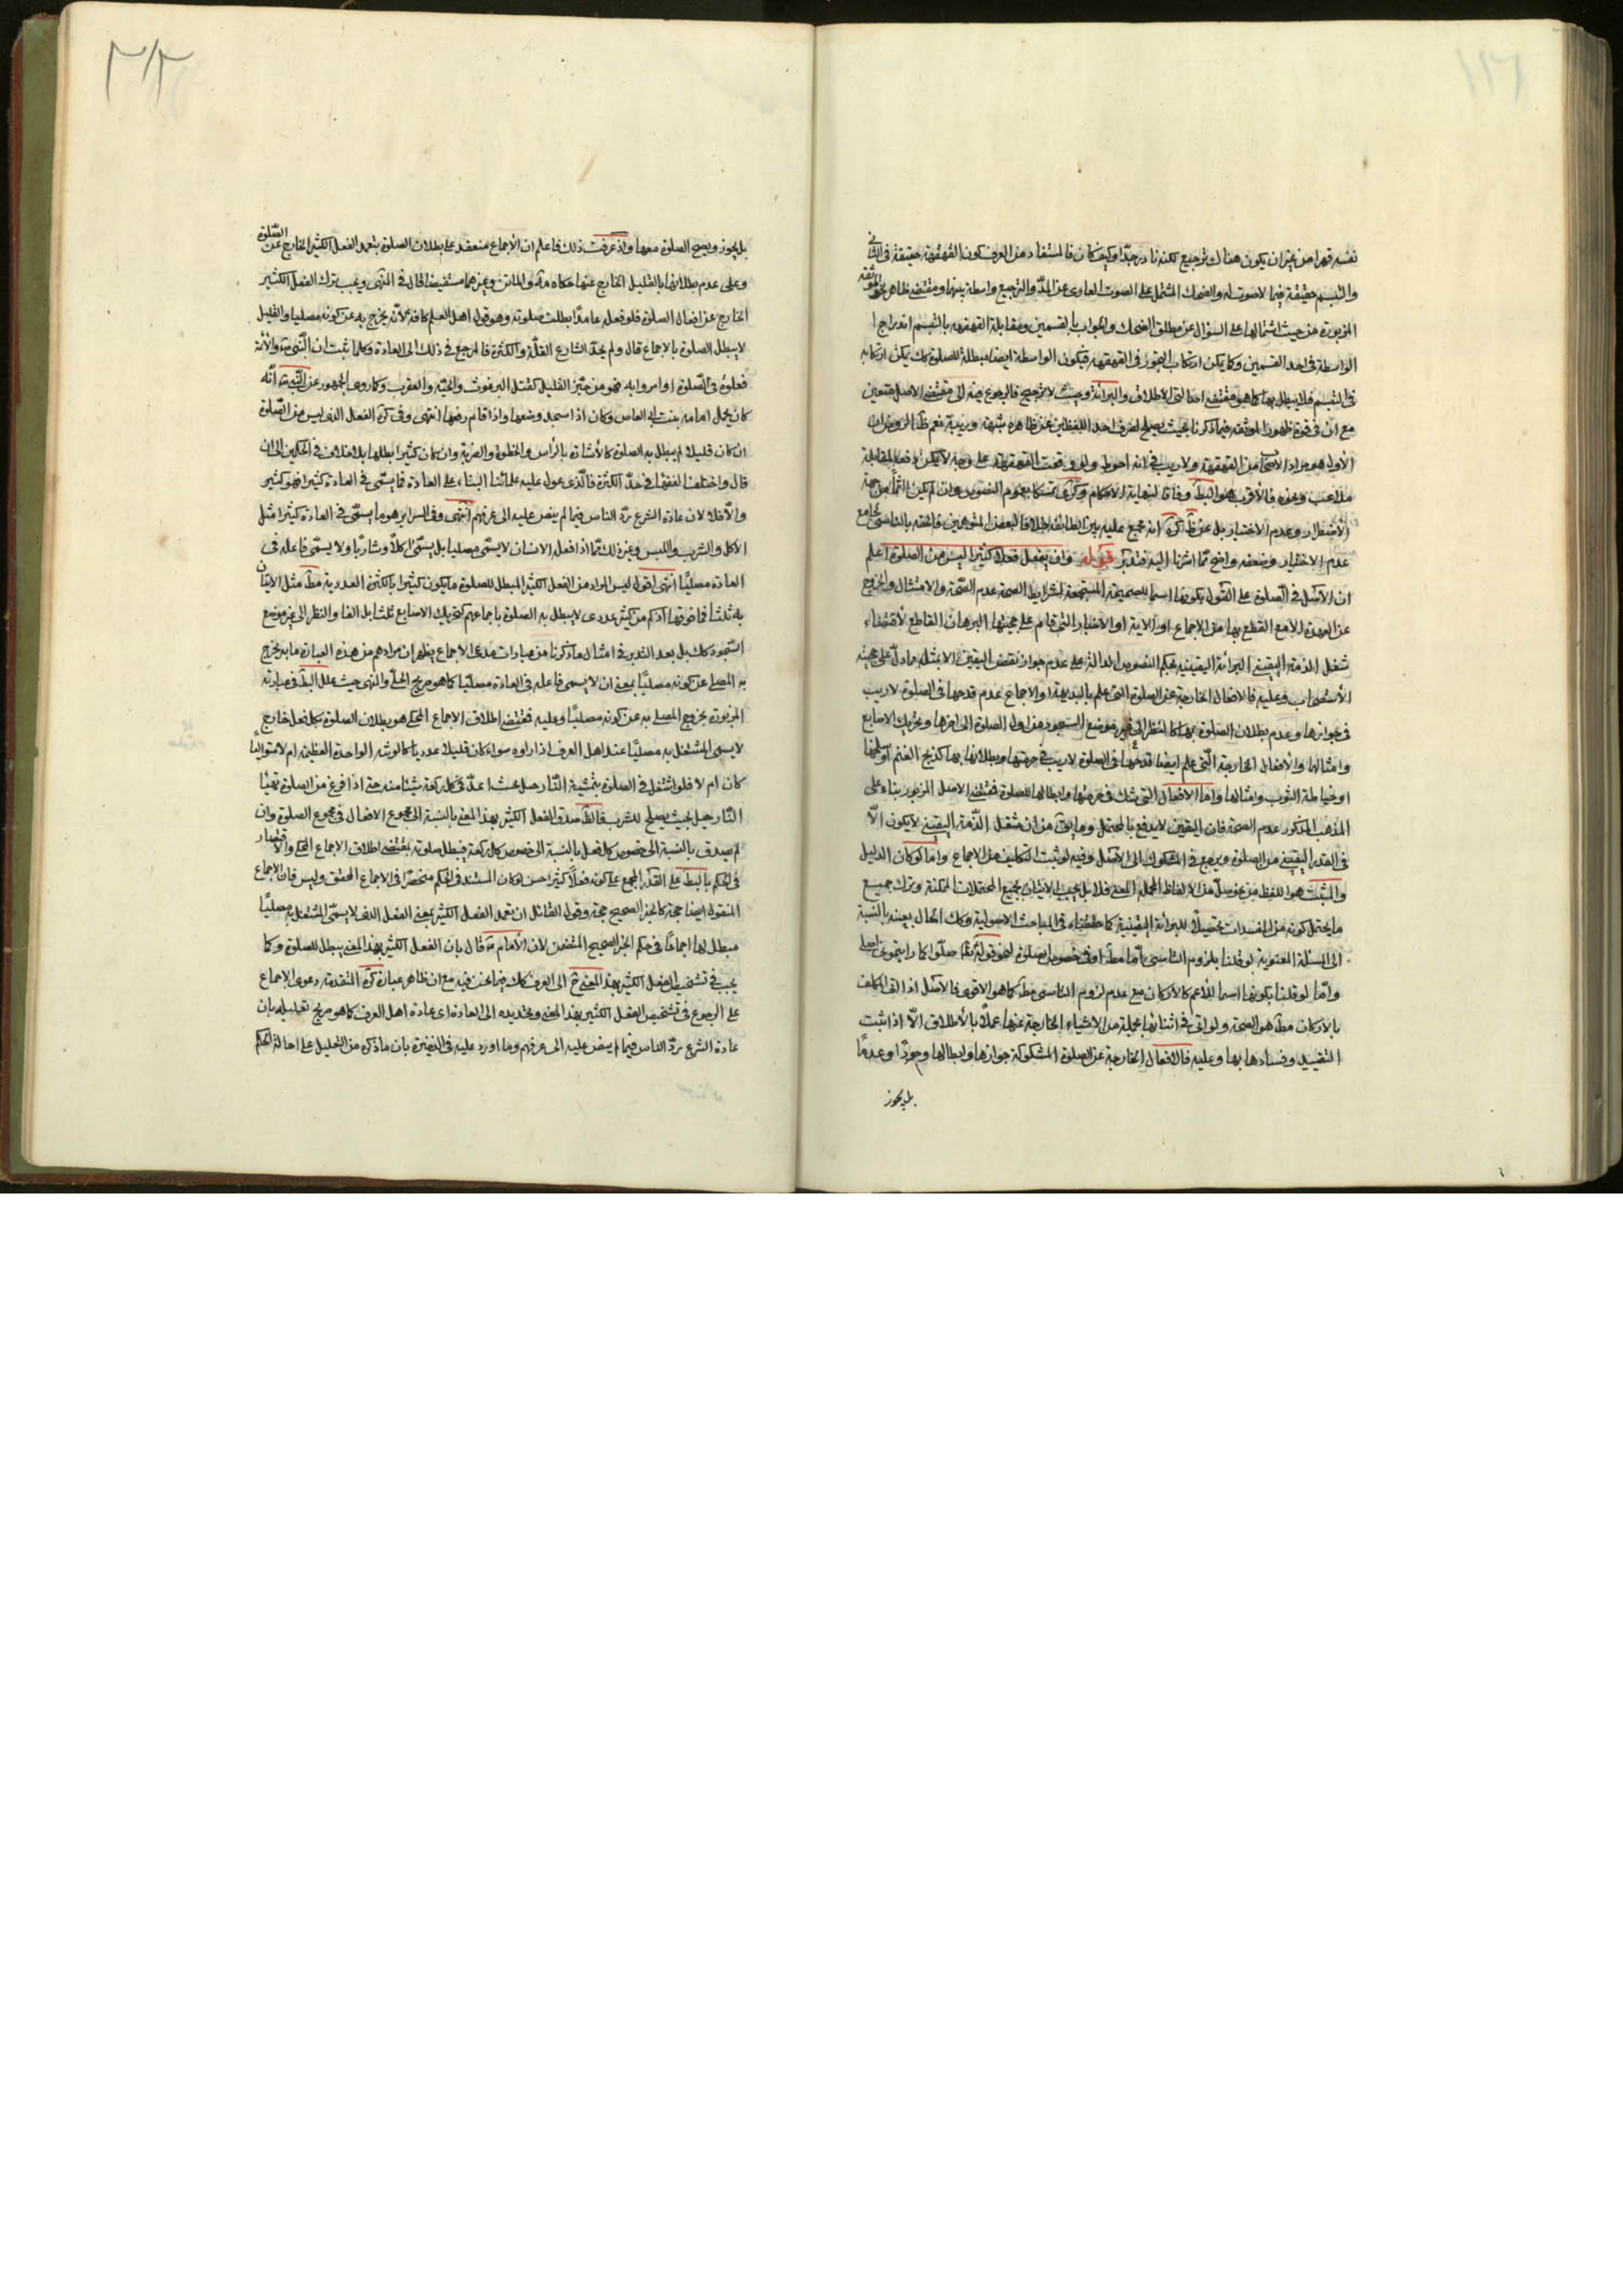 نفسه قهرا من غير ان يكون هناك ترجيع لكنه نادر جدّا وكيف كان فالمستفاد من العرف كون القهقهة حقيقة في الثاني
والتبسم حقيقة فيما لا صوت له والضحك المشتمل على الصوت العارى عن المدّ والترجيع واسطة بينها ومقتضى ظاهر الموثقة
المزبورة من حيث اشتمالها على السؤال عن مطلق الضحك والجواب بالقسمين ومقابلة القهقهه بالتبسم اندراج
الواسطة في احد القسمين وكما يمكن ارتكاب التجوز في القهقهه فيكون الواسطة ايضا مبطلة للصلوة كك يمكن ارتكابه
في التبسم فلا يبطل بها كما هو مقتضى اصالتي الاطلاق والبرائة وحيث لا ترجيح فالرجوع فيه الى مقتضى الاصل متعين
مع ان في قوة ظهور الموثقه فيما ذكرنا بحيث يصلح لصرف احد اللفظين عن ظاهره شبهة وريبة نعم ظ الروض ان
الاول هو مراد الاصحاب من القهقهة ولا ريب في انه احوط ولو وقعت القهقهة على وجه لا يمكن دفعه لمقابلة
ملاعب ونحوه فالأقرب هو البط وفاقا لنهاية الاحكام وكرى تمسكا بعموم النصوص وان لم يكن اثما من جهة
الاضطرار وعدم الاختيار بل عن ظ كره انه مجمع عليه بين الطائفه خلافا لبعض المتوهمين فالحقه بالناسي بجامع
عدم الاختيار وضعفه واضح ممّا اشرنا اليه فتدبر قوله وان يفعل فعلا كثيرا ليس من الصلوة اعلم
ان الاصل في الصلوة على القول بكونها اسما للصحيحة المستجمعة لشرايط الصحة عدم الصّحة والامتثال والخروج
عن العهدة الا مع القطع بها من الاجماع او الاية او الاخبار التي قام على حجيتها البرهان القاطع لاقتضاء
شغل الذمة اليقيني البرائة اليقينيه بحكم النصوص الدالة على عدم جواز نقض اليقين الا بمثله مما دلّ على حجية
الأستصحاب وعليه فالافعال الخارجة عن الصلوة التي علم بالبديهة او الاجماع عدم قدحها في الصلوة لا ريب
في جوازها وعدم بطلان الصلوة بها كالنظر الى غير موضع السجود من اول الصلوة الى اخرها وتحريك الاصابع
وامثالها والأفعال الخارجة التي علم ايضا قدحها في الصلوة لا ريب في حرمتها وبطلانها بها كذبح الغنم او سلخها
او خياطة الثوب وامثالها واما الافعال التي شك في حرمتها وابطالها للصلوة فمقتضى الاصل المزبور بناء على
المذهب المذكور عدم الصحة فان اليقين لا يدفع بالمحتمل وما يق من ان شغل الذّمة اليقيني لا يكون الّا
في القدر اليقيني من الصلوة ويرجع في المشكوك الى الاصل وفيه لو ثبت التكليف من الاجماع واما لو كان الدليل
والمثبت هو اللفظ من نحو صلّ من الالفاظ المجملة المعنى فلا بل يجب الاتيان بجميع المحتملات الممكنة وترك جميع
ما يحتمل كونه من المفسدات تحصيلا للبرائة اليقينية كما حققناه في المباحث الاصولية وكك الحال بعينه بالنسبة
الى المسئلة المعنوية لو قلنا بلزوم التاسى امّا مطلقا او في خصوص الصلوة لنحو قوله صلّوا كما رايتموني اصلي
وامّا لو قلنا بكونها اسما للاعم كالاركان مع عدم لزوم التاسى مط كما هو الاقوى فالاصل اذا اتى المكلف
بالاركان مط هو الصحة ولو اتى في اثنائها بجملة من الاشياء الخارجة عنها عملا بالأطلاق الّا اذا ثبت
التقييد وفسادها بها وعليه فالافعال الخارجة عن الصلوة المشكوكة جوازها وابطالها وجودا وعدمًا
بل يجوز
٣١٣
بل يجوز ويصح الصلوة معها واذ عرفت ذلك فاعلم ان الأجماع منعقد على بطلان الصلوة بتعمد الفعل الكثير الخارج عن الصّلوة
وعلى عدم بطلانها بالقليل الخارج عنها حكاه مة والماتن وغيرهما مستفيضا قال في المنتهى ويجب ترك الفعل الكثير
الخارج عن افعال الصلوة فلو فعله عامدًا بطلت صلوته وهو قول اهل العلم كافة لأنه يخرج به عن كونه مصليا والقليل
لا يبطل الصلوة بالاجماع قال ولم يحدّ الشارع القلّة والكثرة فالمرجع في ذلك الى العادة وكلما ثبت ان النّبي ص والأئمة
فعلوه في الصّلوة او امروا به فهو من حيّز القليل كقتل البرغوث والحيّه والعقرب وكما روى الجمهور عن النّبي ص أنّه
كان يحمل امامه بنت ابي العاص وكان اذا سجد وضعها واذا قام رفعها انتهى وفي كره الفعل الذى ليس من الصّلوة
ان كان قليلا لم يبطل به الصلوة كالأشارة بالرأس والخطوة والضربة وان كان كثيرا ابطلها بلا خلاف في الحكمين الى ان
قال واختلف الفقهاء في حدّ الكثرة فالّذى عول عليه علمائنا البناء على العادة فما يسمّى في العادة كثيرا فهو كثير
والّا فلا لان عادة الشرع ردّ الناس فيما لم ينص عليه الى عرفهم انتهى وفي السراير هو ما يسمّى في العادة كثيرا مثل
الأكل والشرب واللبس وغير ذلك ممّا اذا فعله الانسان لا يسمّى مصليا بل يسمّى اكلا وشاربًا ولا يسمّى فاعله في
العادة مصليًا انتهى اقول ليس المراد من الفعل الكثير المبطل للصلوة ما يكون كثيرا بالكثرة العددية مط مثل الاتيان
به ثلثا فما فوقها اذ كم من كثير عددى لا يبطل به الصلوة باجماعهم كتحريك الاصابع ثلثا بل الفا والنظر الى غير موضع
السّجود كك بل بعد التدبر في امثال ما ذكرنا من عبارات مدعى الاجماع يظهر ان مرادهم من هذه العبارة ما يخرج
به المصلى عن كونه مصليًا بمعنى ان لا يسمى فاعله في العادة مصليًا كما هو صريح الحلّى والمنتهى حيث علل البط في عبارته
المزبورة بخروج المصلى به عن كونه مصليًا وعليه فمقتضى اطلاق الاجماع المحكى هو بطلان الصلوة بكل فعل خارج
لا يسمى المشتغل به مصليًا عند اهل العرف اذا راوه سواء كان قليلا عدديا كالوثبة الواحدة العظيمة ام لا متواليًا
كان ام لا فلو اشتغل في الصلوة بتمشية النّارجيل عبثا عدّ في كل ركعة شيئا منه حتى اذا فرغ من الصلوة تهيّا
النّارجيل بحيث يصلح للشرب فالظ صدق الفعل الكثير بهذا المعنى بالنسبة الى مجموع الافعال في مجموع الصلوة وان
لم يصدق بالنسبة الى خصوص كل فعل بالنسبة الى خصوص كل ركعة فيبطل صلوته بمقتضى اطلاق الاجماع المحكى والاقتصار
في الحكم بالبط على القدر المجمع على كونه فعلًا كثيرا حسن لو كان المستند في الحكم منحصرًا في الاجماع المحقق وليس فان الاجماع
المنقول ايضا حجة كالخبر الصحيح حجة وقول القائل ان تعمد الفعل الكثير بمعنى الفعل الذى لا يسمّى المشتغل به مصليًا
مبطل لها اجماعًا في حكم الخبر الصحيح المتضمن لان الأمام ع قال بان الفعل الكثير بهذا المعنى يبطل للصلوة وكما
يجب في تشخيص الفعل الكثير بهذا المعنى ثم الى العرف كك فيما نحن فيه مع ان ظاهر عبارة كره المتقدمة دعوى الاجماع
على الرجوع في تشخيص الفعل الكثير بهذا المعنى وتحديده الى العادة اى عادة اهل العرف كما هو صريح تعليله بان
عادة الشرع ردّ الناس فيما لم ينص عليه الى عرفهم وما اورد عليه في الذخيرة بان ما ذكره من التعليل على احالة الحكم